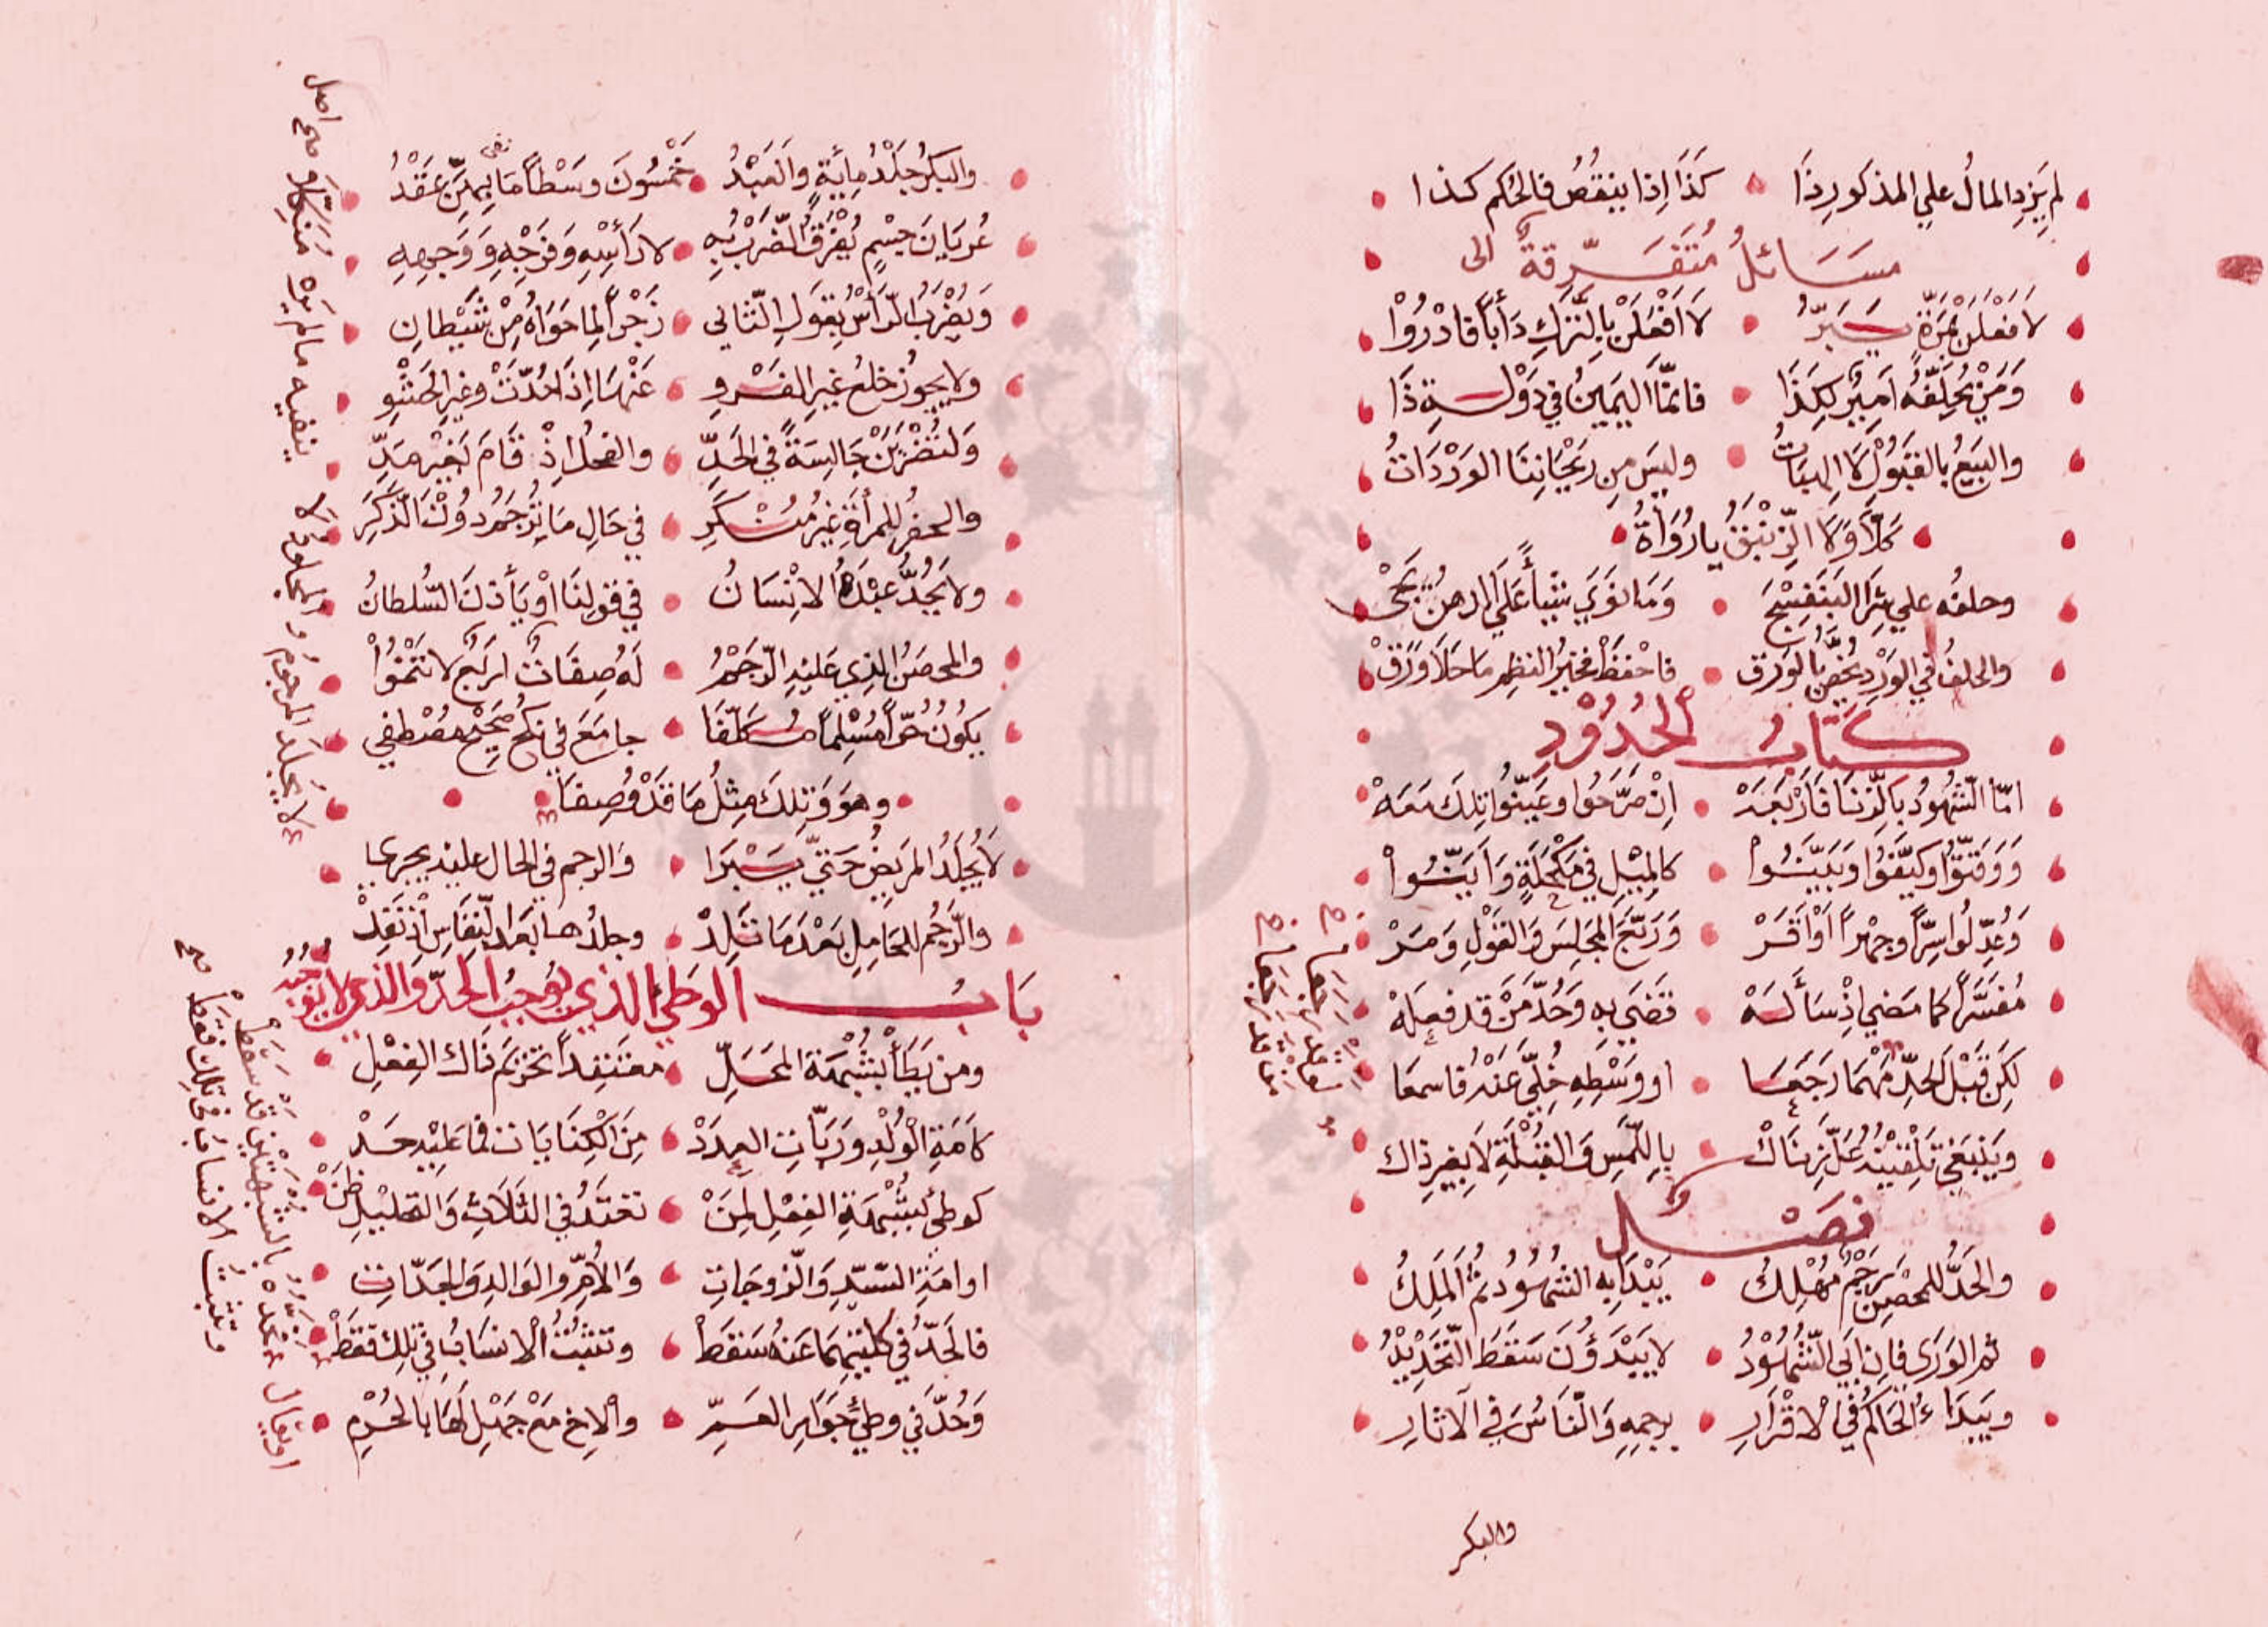 لم يَزِدِ المالُ علي المذكورِ ذَا كَذَا اِذا ينقُصُ فالحُكم كذا
مسَائلُ مُتَفَرِّقةٌ الى
لا فعَلَنْ بمَرّةٍ يَبَرُّ لَا افْعَلَنْ بِالتَّركِ دَأباً فادْرُوْا
وَمَنْ يُحلِّفْهُ اَمِيرٌ لِكَذَا فانمّا اليَمِينُ في دَوْلةِ ذَا
والبَيعُ بالقبُولْ لَا الهبَاتُ وليسَ مِن رَيْحَانِنَا الوَرْدَاتُ
كَلَّا وَلَا الزنْبَقُ يا رُوَاةُ
وحلفُه علي شِرَا البَنَفْسَجِ وَمَا نوَي شيْأً عَلَي الدهنُ يَجْي
والحلفُ في الوَرْدِ يُخصُّ بالورَق فاحْفَظْ فخيرُ النظمِ ما حَلَا وَرَقْ
كتَابُ الحُدُوْدِ
امّا الشهُودُ بالزِّنا فَارْبَعَهْ اِنْ صَرَّحُوا وعَيَّنُوا تِلكَ مَعَهْ
وَوَقتّوُا وكيَّفوُا وَبَيَّنُوا كالمِيْلِ في مَكْحَلَةٍ وَاَبَيّنُوا
وَعُدِّلُوا سِرًّا وجهْراً اوْ اقَرْ وَرَبَّعَ المجَلِسَ وَالقَوْلِ وَمَرْ
مُفسَّراً كما مَضي اِذْ سَأَلَهْ قضَي بهِ وَحُدَّ مَنْ قد فعلَهْ
لكِن قَبْلَ الحدِّ مَهْمَا رَجَعَا او وَسْطِهِ خُلِّيَ عَنْهُ فاسمعَا
وَيَنْبَغي تلْقِيْنُهُ عَلَّ زنَاكْ بِاللَّمسِ وَالقُبْلَةِ لَا بِغيرِ ذاك
فصْلٌ
والحَدُّ للمحْصِنِ رَجْمٌ مُهْلِكُ يَبْدَا بهِ الشهُودُ ثمَّ المَلِكُ
ثم الوَرَى فان اَبَي الشهُوْدُ لا يَبْدَؤُنَ سَقَطَ التَّحْدِيْدُ
ويَبَدَاءُ الحَاكمُ في الاقْرَارِ برجمِهِ وَالنَّاسُ في الآثارِ
والبكر
والبكرُ جَلْدُ مِائَةٍ والعَبْدُ خَمْسُونَ وسَطْاً مَا بِهِنَّ عَقْدُ
عُريَانَ جسْمٍ يُفْرَقُ الضَّرْبُ بِهِ لا رَأسْهِ وَفرْجِهِ وَوَجههِ
وَيُضْرَبُ الرَّأسُ بِقولِ الثاني زَجْراً لِما حَوَاهُ مِنْ شَيْطانِ
ولا يجوز خلعُ غيرِ الفَرْوِ عَنْهَا اِذَا حُدّتْ وغيرِ الحَشْوِ
وَلتُضْرَبَنْ جَالِسَةً في الحَدِّ والفحلُ اِذْ قَامَ بغيْرِ مَدِّ
والحفرُ للمرأةِ غيرُ مُنْكَرِ في حَالِ مَا تُرْجَمُ دُونَ الذَّكَرَ
ولا يَحُدُّ عَبْدَهُ الانْسَانُ في قولِنَا اوْ يَأذنَ السُّلطانُ
والمحصَنُ الذي عَليْهِ الرَّجَمْ لَهُ صِفَاتٌ اربَعٌ لا تنْتَمُوْا
يكوُنُ حُرّاً مُسْلِماً مُكَلَّفَا جامَعَ في نكحٍ صَحِيْحٍ مُصْطَفي
وهوَ وَتِلكَ مِثلُ مَا قدْ وُصِفَا
لَا يُجْلَدُ المَرِيضُ حَتيّ يَبْرَا وَالرجم في الحال عليه يجرِي
والرَّجْمُ للحَامِلِ بَعْدَ مَا تَلِدْ وجلدُها بَعْدَ النِّفَاسِ
بَابُ الوَطيِ الذي يُوجبُ الحدّ والذي لا يُوجبه
ومن يَطَأ بشُبْهَةِ المَحَلِّ معْتقِداً تحْرِيْمَ ذَاكَ الفِعْلِ
كاَمَةِ الوُلْدِ ورَبَّاتِ العِددْ مِنَ الكِنَايَات فما عَليْهِ حَدْ
كوطئِ بشُبْهَةِ الفِعْلِ لِمَنْ تَعْتَدُّ في الثلاثِ وَالتحْلِيْلِ ظنّ
او امَةِ السّيّدِ وَالزوجَاتِ وَالاُمِّ والوَالدِ والجَدَّاتِ
فالحَدُّ في كليْهِمَا عَنهُ سَقَطْ وتثبُتُ الانسَابُ في تلكَ فقَطْ
وَحُدَّ في وطئِ جوَارِ العَمِّ والاخِ مَعْ جَهْلٍ لهَا بالحُرْمِ